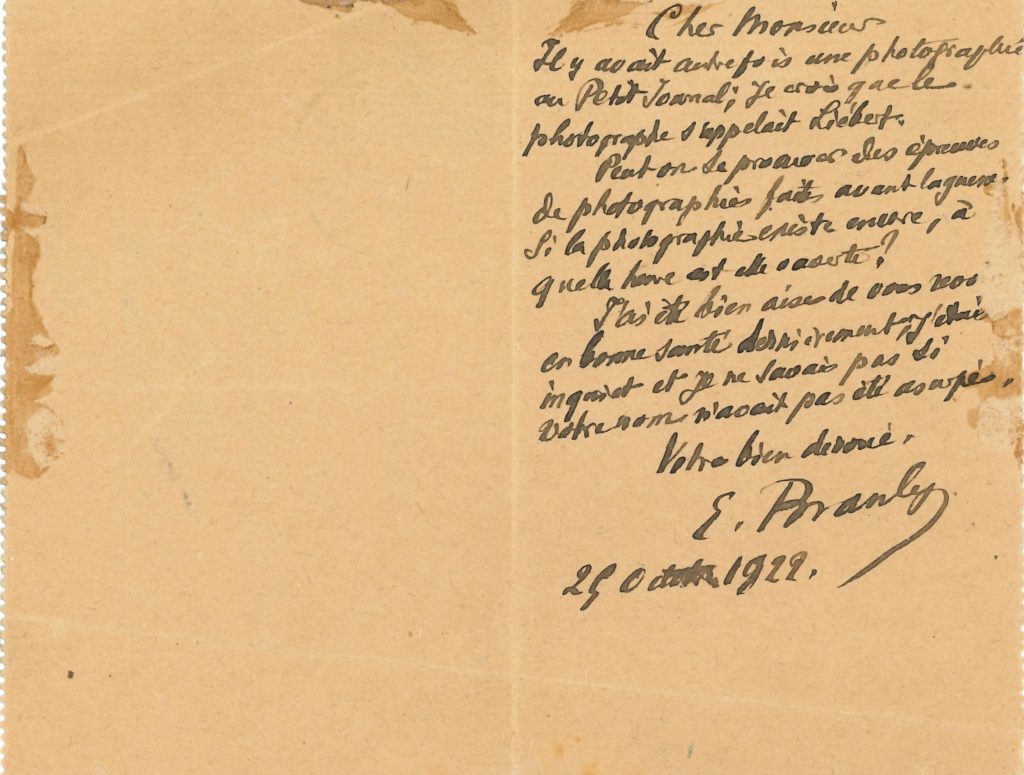 Cher Monsieur
Il y avait autrefois une photographie
au Petit Journal; je crois que le
photographe s'appelait Liébert.
Peut on se procurer des épreuves
de photographies faites avant la guerre.
Si la photographie existe encore, à
quelle heure est elle ouverte?
J'ai été bien aise de vous voir
en bonne santé dernièrement, j'étais
inquiet et je ne savais pas si
votre nom n'avait pas été
Votre bien dévoué.
E. Branly
25 Octobre 1922.